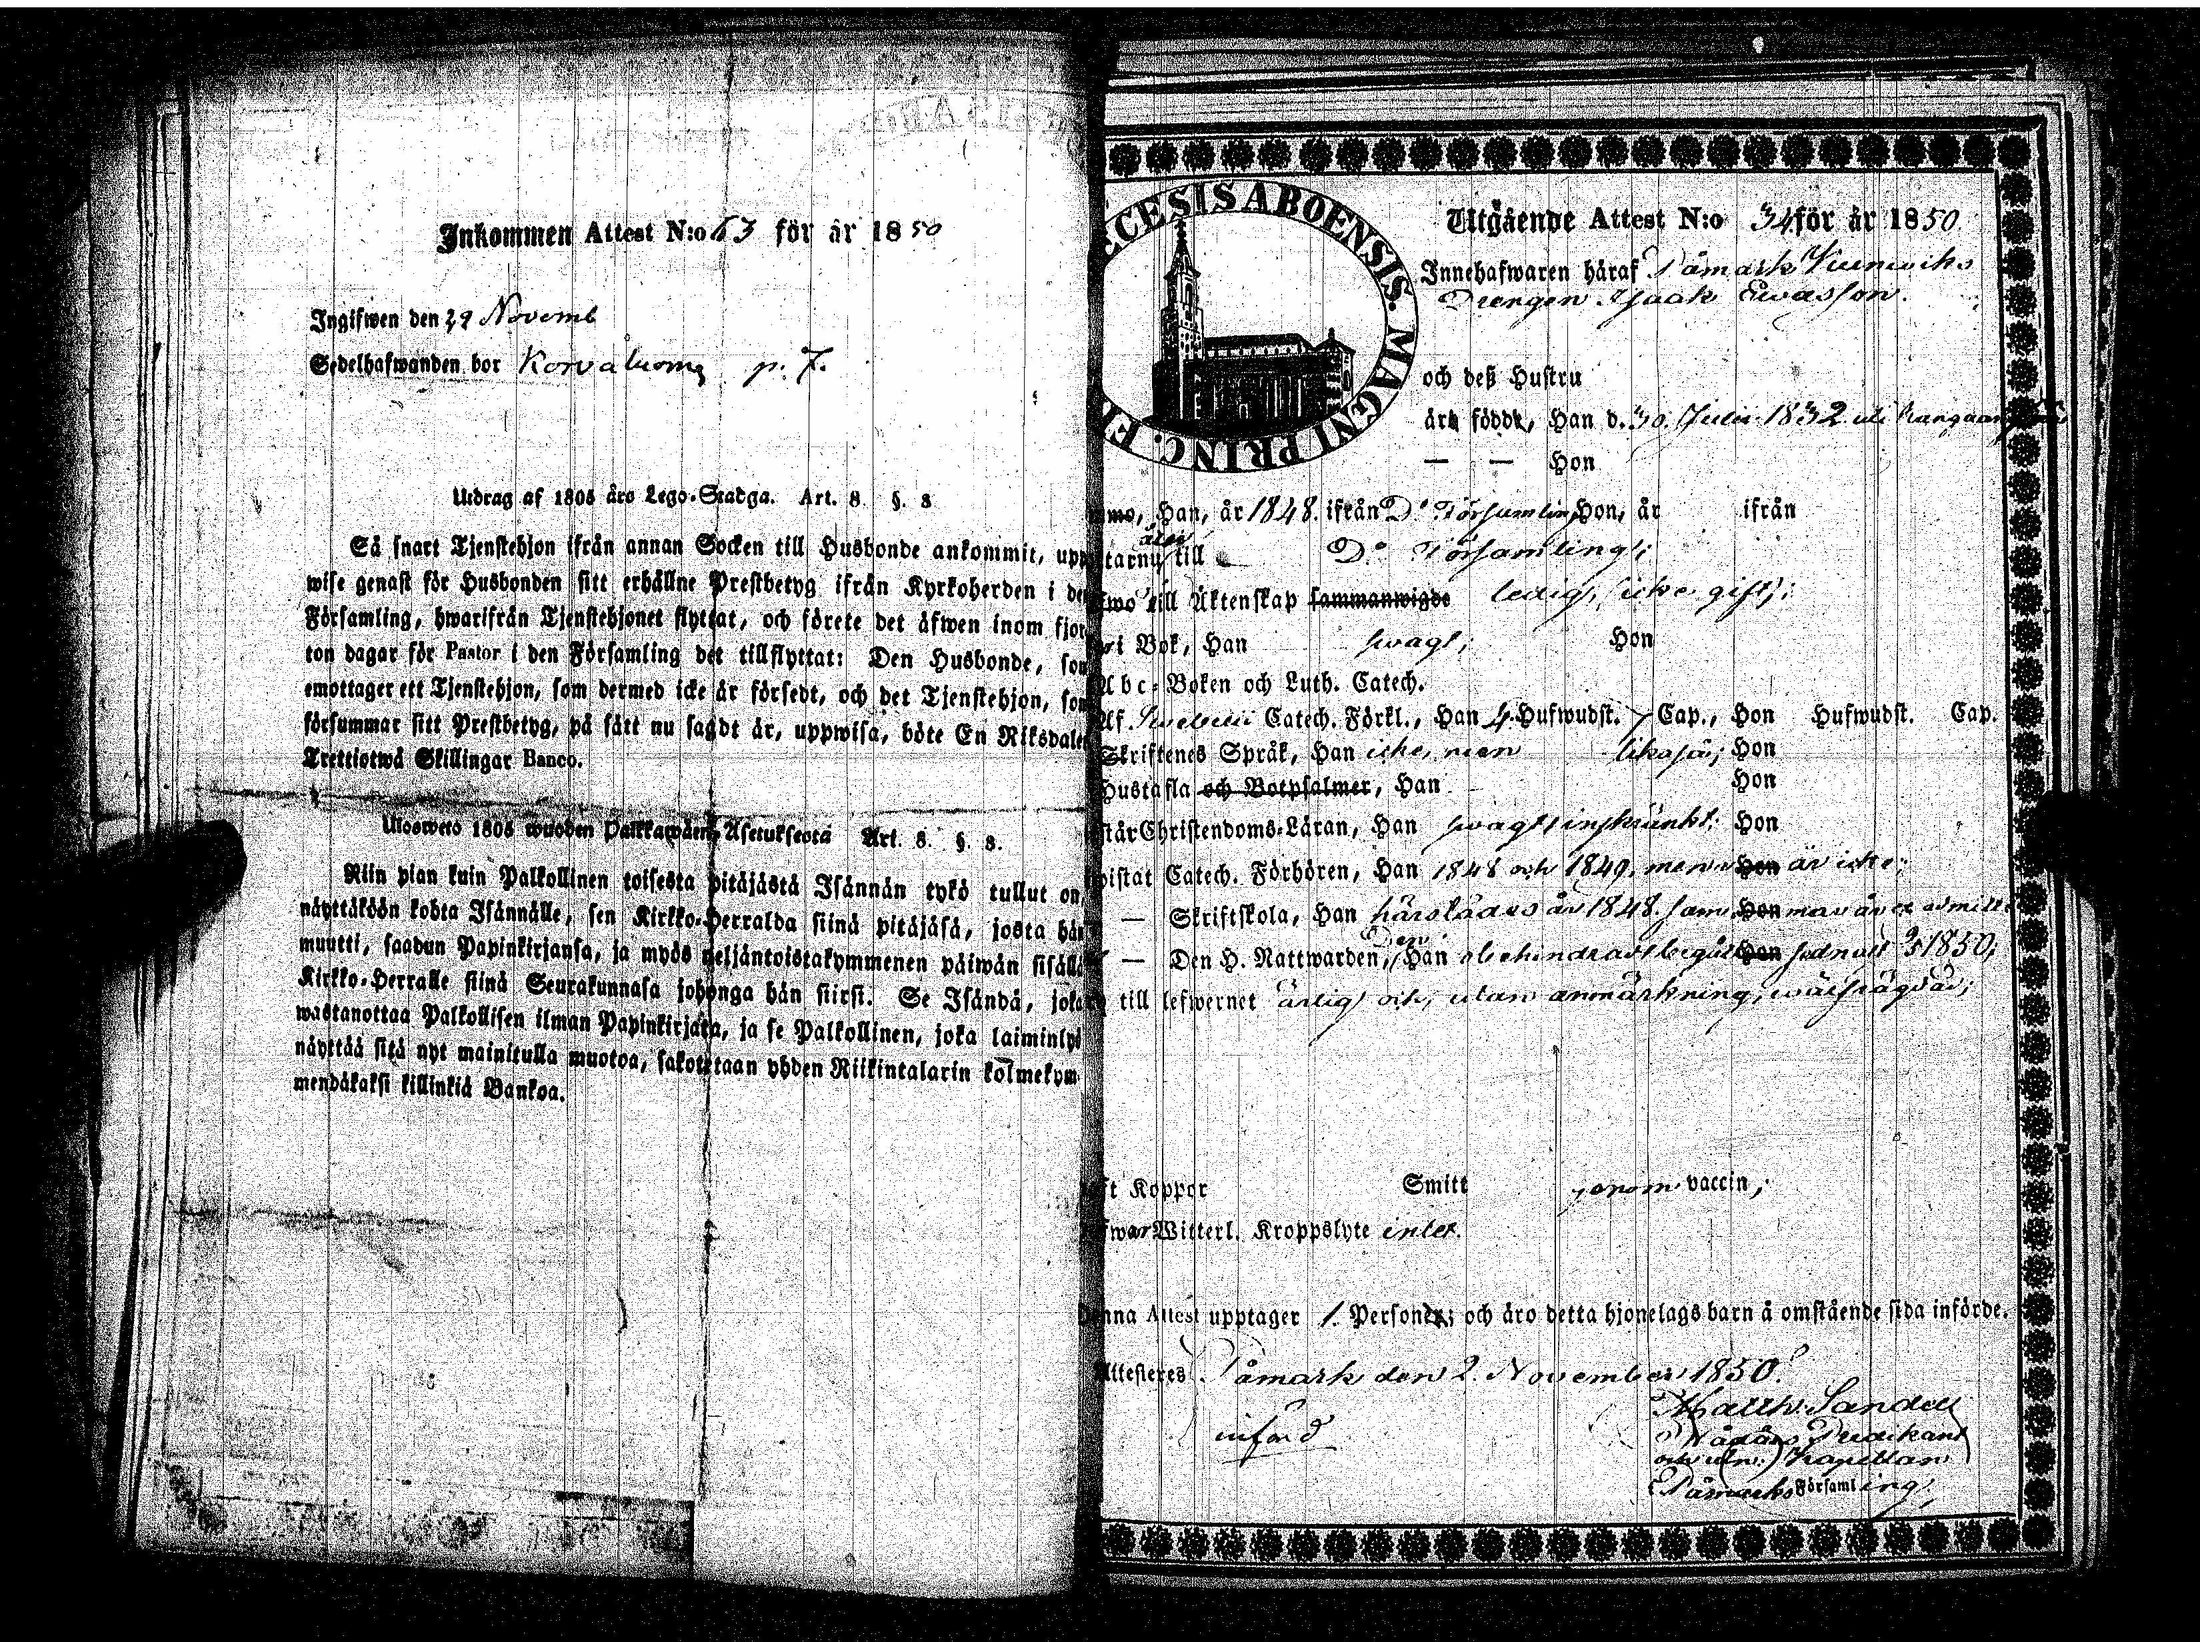 Inkommen Attest N:o 63 för år 1850
Ingifwen den 29 Novemb
Sedelhafwanden bor Korvaluoma p. 7.
Utdrag af 1805 års Lego-Stadga. Art. 8. §. 8
Så snart Tjenstehjon ifrån annan Socken till Husbonde ankommit, upp
wise genast för Husbonden sitt erhållne Prestbetyg ifrån Kyrkoherden i de
Församling, hwarifrån Tjenstehjonet flyttat, och förete det äfwen inom fjor
ton dagar för Pastor i den Församling det tillflyttat: Den Husbonde, som
emottager ett Tjenstehjon, som dermed icke är försedt, och det Tjenstehjon, som
försummar sitt Prestbetyg, på sätt nu sagdt är, uppwisa, böte En Riksdaler
Trettiotwå Skillingar Banco.
Ulosweto 1805 wuoden Palkkawäen Asetuksesta Art. 8. §. 8.
Niin pian kuin Palkollinen toisesta pitäjästä Isännän tykö tullut on,
näyttäköön kohta Isännälle, sen Kirkko-Herralda siinä pitäjäsä, josta hän
muutti, saadun Papinkirjansa, ja myös neljäntoistakymmenen päiwän sisällä
Kirkko-Herralle siinä Seurakunnasa johonga hän siirsi. Se Isändä, joka
wastanottaa Palkollisen ilman Papinkirjata, ja se Palkollinen, joka laiminlyö
näyttää sitä nyt mainitulla muotoa, sakotetaan yhden Riikintalarin kolmekym
mendäkaksi killinkiä Bankoa.
ECESIS ABOENSIS. MAGNI PRINC. FI
Utgående Attest N:o 34 för år 1850
Innehafwaren häraf Påmark
Drengen Isaak Ewasson.
och deß Hustru
äro födde, Han d. 30 Julii 1832 uti
— — Hon
Han, år 1848. ifrån D:o Församling Hon, år ifrån
åter
tarnu till D:o Församling;
till Äktenskap sammanwigde ledig, icke gift;
i Bok, Han swagt; Hon
Abc-Boken och Luth. Catech.
Af Swebelii Catech. Förkl., Han 4 Hufwudst. 7 Cap., Hon Hufwudst. Cap.
Skriftenes Språk, Han icke, men likaså; Hon
Hustafla och Botpsalmer, Han Hon
står Christendoms-Läran, Han swagt, inskränkt; Hon
wistat Catech. Förhören, Han 1848 och 1849, men Hon är icke;
— Skriftskola, Han härstädes år 1848. Hon
— Den H. Nattwarden, Han obehindradt begått Hon 1850;
till lefwernet ärlig och, utan anmärkning, wälfrägdad;
ft Koppor Smitt genom vaccin;
Witterl. Kroppslyte intet.
Denna Attest upptager 1. Personer; och äro detta hjonelags barn å omstående sida införde.
Attesteres Påmark den 2. November 1850.
införd
Matth. Sandell
Nådårs Predikant
och Kapellan
Påmarks Församling,